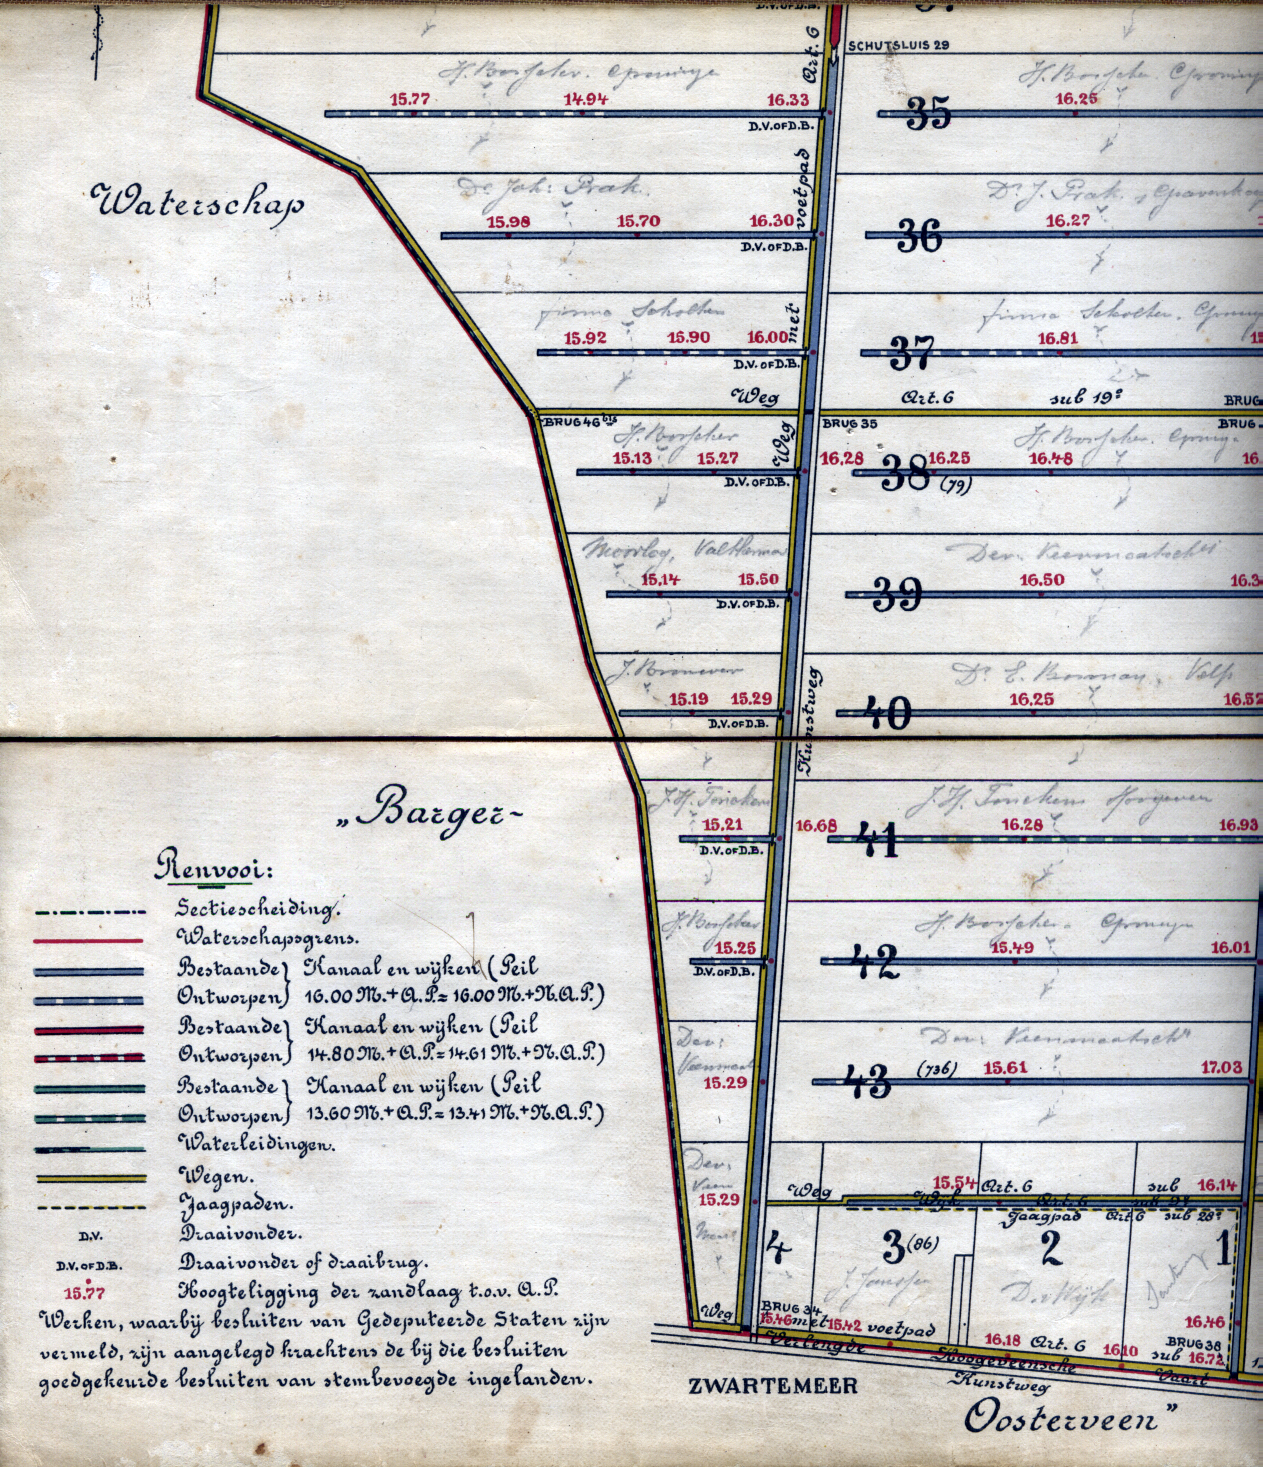 D.V. OF D.B.
Art. 6
SCHUTSLUIS 29
H. Bosscher. Groninge
H. Bosscher. Groning
15.77 14.94 16.33
16.25
35
D.V. OF D.B.
Waterschap
voetpad
Dr. Joh: Prak.
Dr. J. Prak.
15.98 15.70 16.30
16.27
36
D.V. OF D.B.
met
firma Scholten
firma Scholten.
15.92 15.90 16.00
16.81
37
D.V. OF D.B.
Weg
Art. 6 sub 19e
BRUG
BRUG 46 bis
BRUG 35
BRUG
Weg
H. Bosscher
H. Bosscher.
15.13 15.27
16,28 16.25 16.48 16.
38 (79)
D.V. OF D.B.
Moorlog, Valtherm
Dev: Veenmaatsch
15,14 15.50
16.50 16.3
39
D.V. OF D.B.
Velp
15.19 15.29
16,25 16.52
40
D.V. OF D.B.
Kunstweg
J. H. Tonckens
J. H. Tonckens Hoogeveen
15.21
16.68 16.28 16.93
41
D.V. OF D.B.
H. Bosscher
H. Bosscher.
15.25
15.49 16.01
42
D.V. OF D.B.
Dev:
Veenmaat
Dev: Veenmaatsch
15.29
43 (736) 15.61 17.03
Dev:
Veen
15.29
Maat
Weg
15.54 Art. 6 sub 16.14
Wijk Art. 6 sub 9e
Jaagpad Art. 6 sub 28e
4 3 (86) 2 1
J. Janssen
D. v. Wijk
Weg
BRUG 34
15.46 met 15.42 voetpad
16.46
BRUG 38
16.18 Art. 6 16.10 sub 16.72
Verlengde Hoogeveensche Vaart
Kunstweg
ZWARTEMEER
Oosterveen"
„Barger-
Renvooi:
Sectiescheiding.
Waterschapsgrens.
Bestaande } Kanaal en wijken (Peil
Ontworpen } 16.00 M.+A.P.= 16.00 M.+N.A.P.)
Bestaande } Kanaal en wijken (Peil
Ontworpen } 14.80 M.+A.P.= 14.61 M.+N.A.P.)
Bestaande } Kanaal en wijken (Peil
Ontworpen } 13.60 M.+A.P.= 13.41 M.+N.A.P.)
Waterleidingen.
Wegen.
Jaagpaden.
D.V. Draaivonder.
D.V. OF D.B. Draaivonder of draaibrug.
15.77 Hoogteligging der zandlaag t.o.v. A.P.
Werken, waarbij besluiten van Gedeputeerde Staten zijn
vermeld, zijn aangelegd krachtens de bij die besluiten
goedgekeurde besluiten van stembevoegde ingelanden.